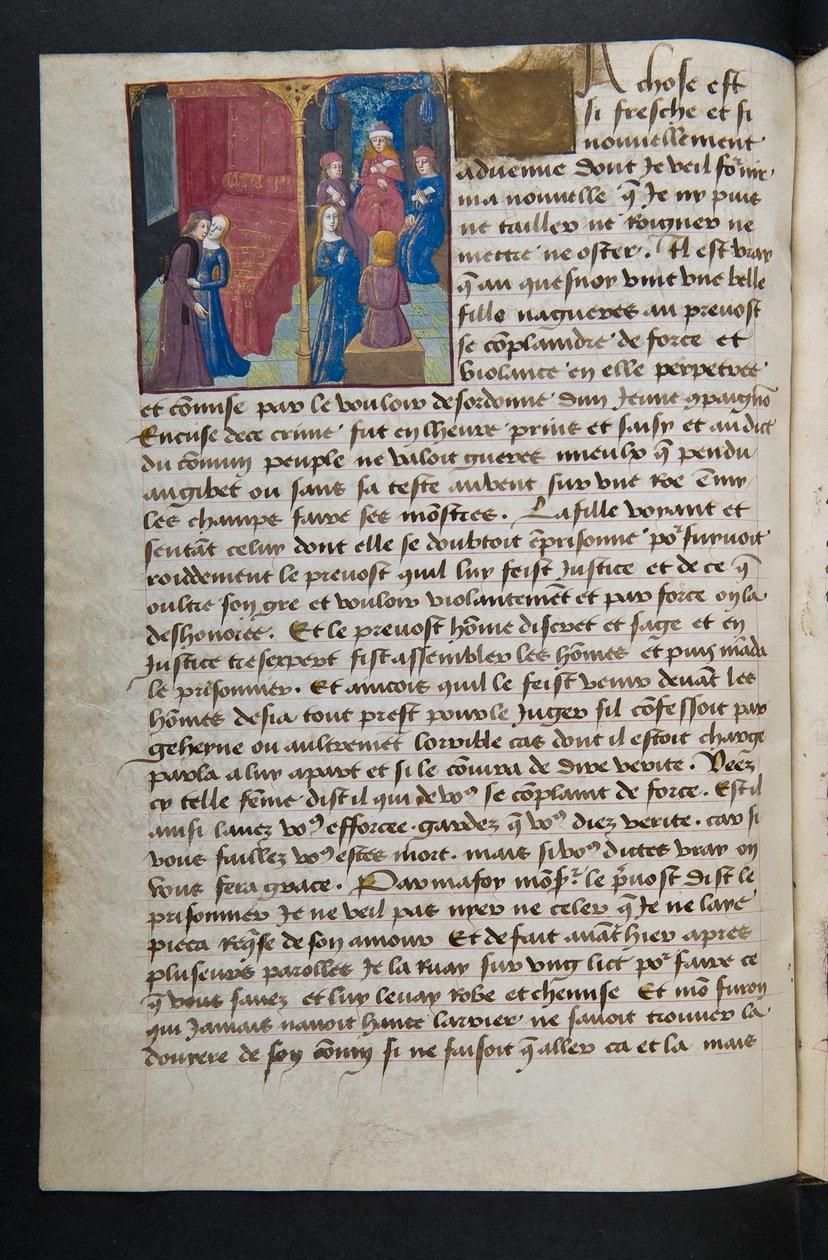 A chose est
si fresche et si
nouuellement
aduenue dont Je veil fo͛nir
ma nouuelle q̄ Je ny puis
ne tailler ne roigner ne
mettre ne oster. Il est vray
q̄ au quesnoy vint vne belle
fille nagueres au preuost
se cōplaindre de force et
violance en elle perpetree
et cōmise par le vouloir desordonne dun Jeune ꝯpaignō
Encuse de ce crime fut en lheure prins et saisy et au dict
du cōmun peuple ne valoit gueres mieulx q̄ pendu
au gibet ou sans sa teste au vent sur vne roe Emy
les champs faire ses mōstres. La fille voyant et
sentāt celuy dont elle se doubtoit ēprisonne po͛suyuoit
roiddement le preuost quil luy feist Justice et de ce q̄
oultre son gre et vouloir violantemēt et par force on la
deshonoree. Et le preuost hōme discret et sage et en
Justice tresexpert fist assembler les hōmes et puis māda
le prisonnier. Et aincois quil le feist venir deuāt les
hōmes desia tout prest pour le Juger sil cōfessoit par
geheyne ou aultremēt lorrible cas dont il estoit charge
parla a luy apart et si le cōiura de dire verite. Veez
cy telle fēme dist il qui de voꝰ se cōplaint de force. Est il
ainsi lauez voꝰ efforcee. gardez q̄ voꝰ diez verite. car si
vous faillez voꝰ estes mort. mais si voꝰ dictes vray on
vous fera grace. Par ma foy mōsr le p̄uost dist le
prisonnier Je ne veil pas nyer ne celer q̄ Je ne laye
pieca reqͥse de son amour Et de fait auāt hier apres
pluseurs parolles Je la ruay sur vng lict po͛ faire ce
q̄ vous sauez et luy leuay robe et chemise Et mō furon
qui Jamais nauoit hante larrier ne sauoit trouuer la
douyere de son cōnin si ne faisoit q̄ aller ca et la mais